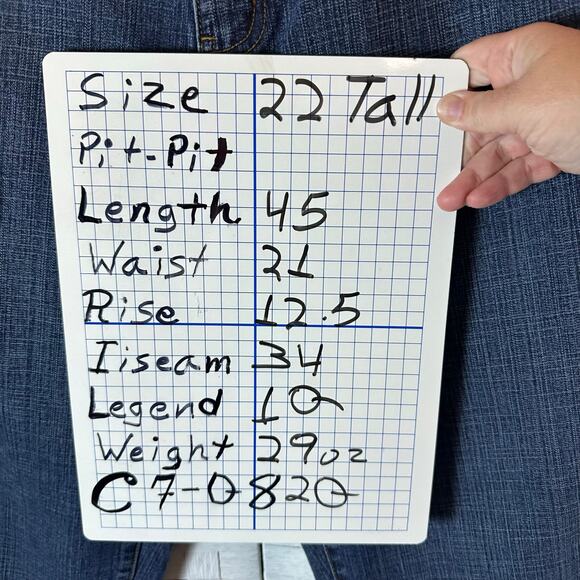 Size 22 Tall
Pit-Pit
Length 45
Waist 21
Rise 12.5
Iiseam 34
Legend 10
Weight 29oz
C7-0820